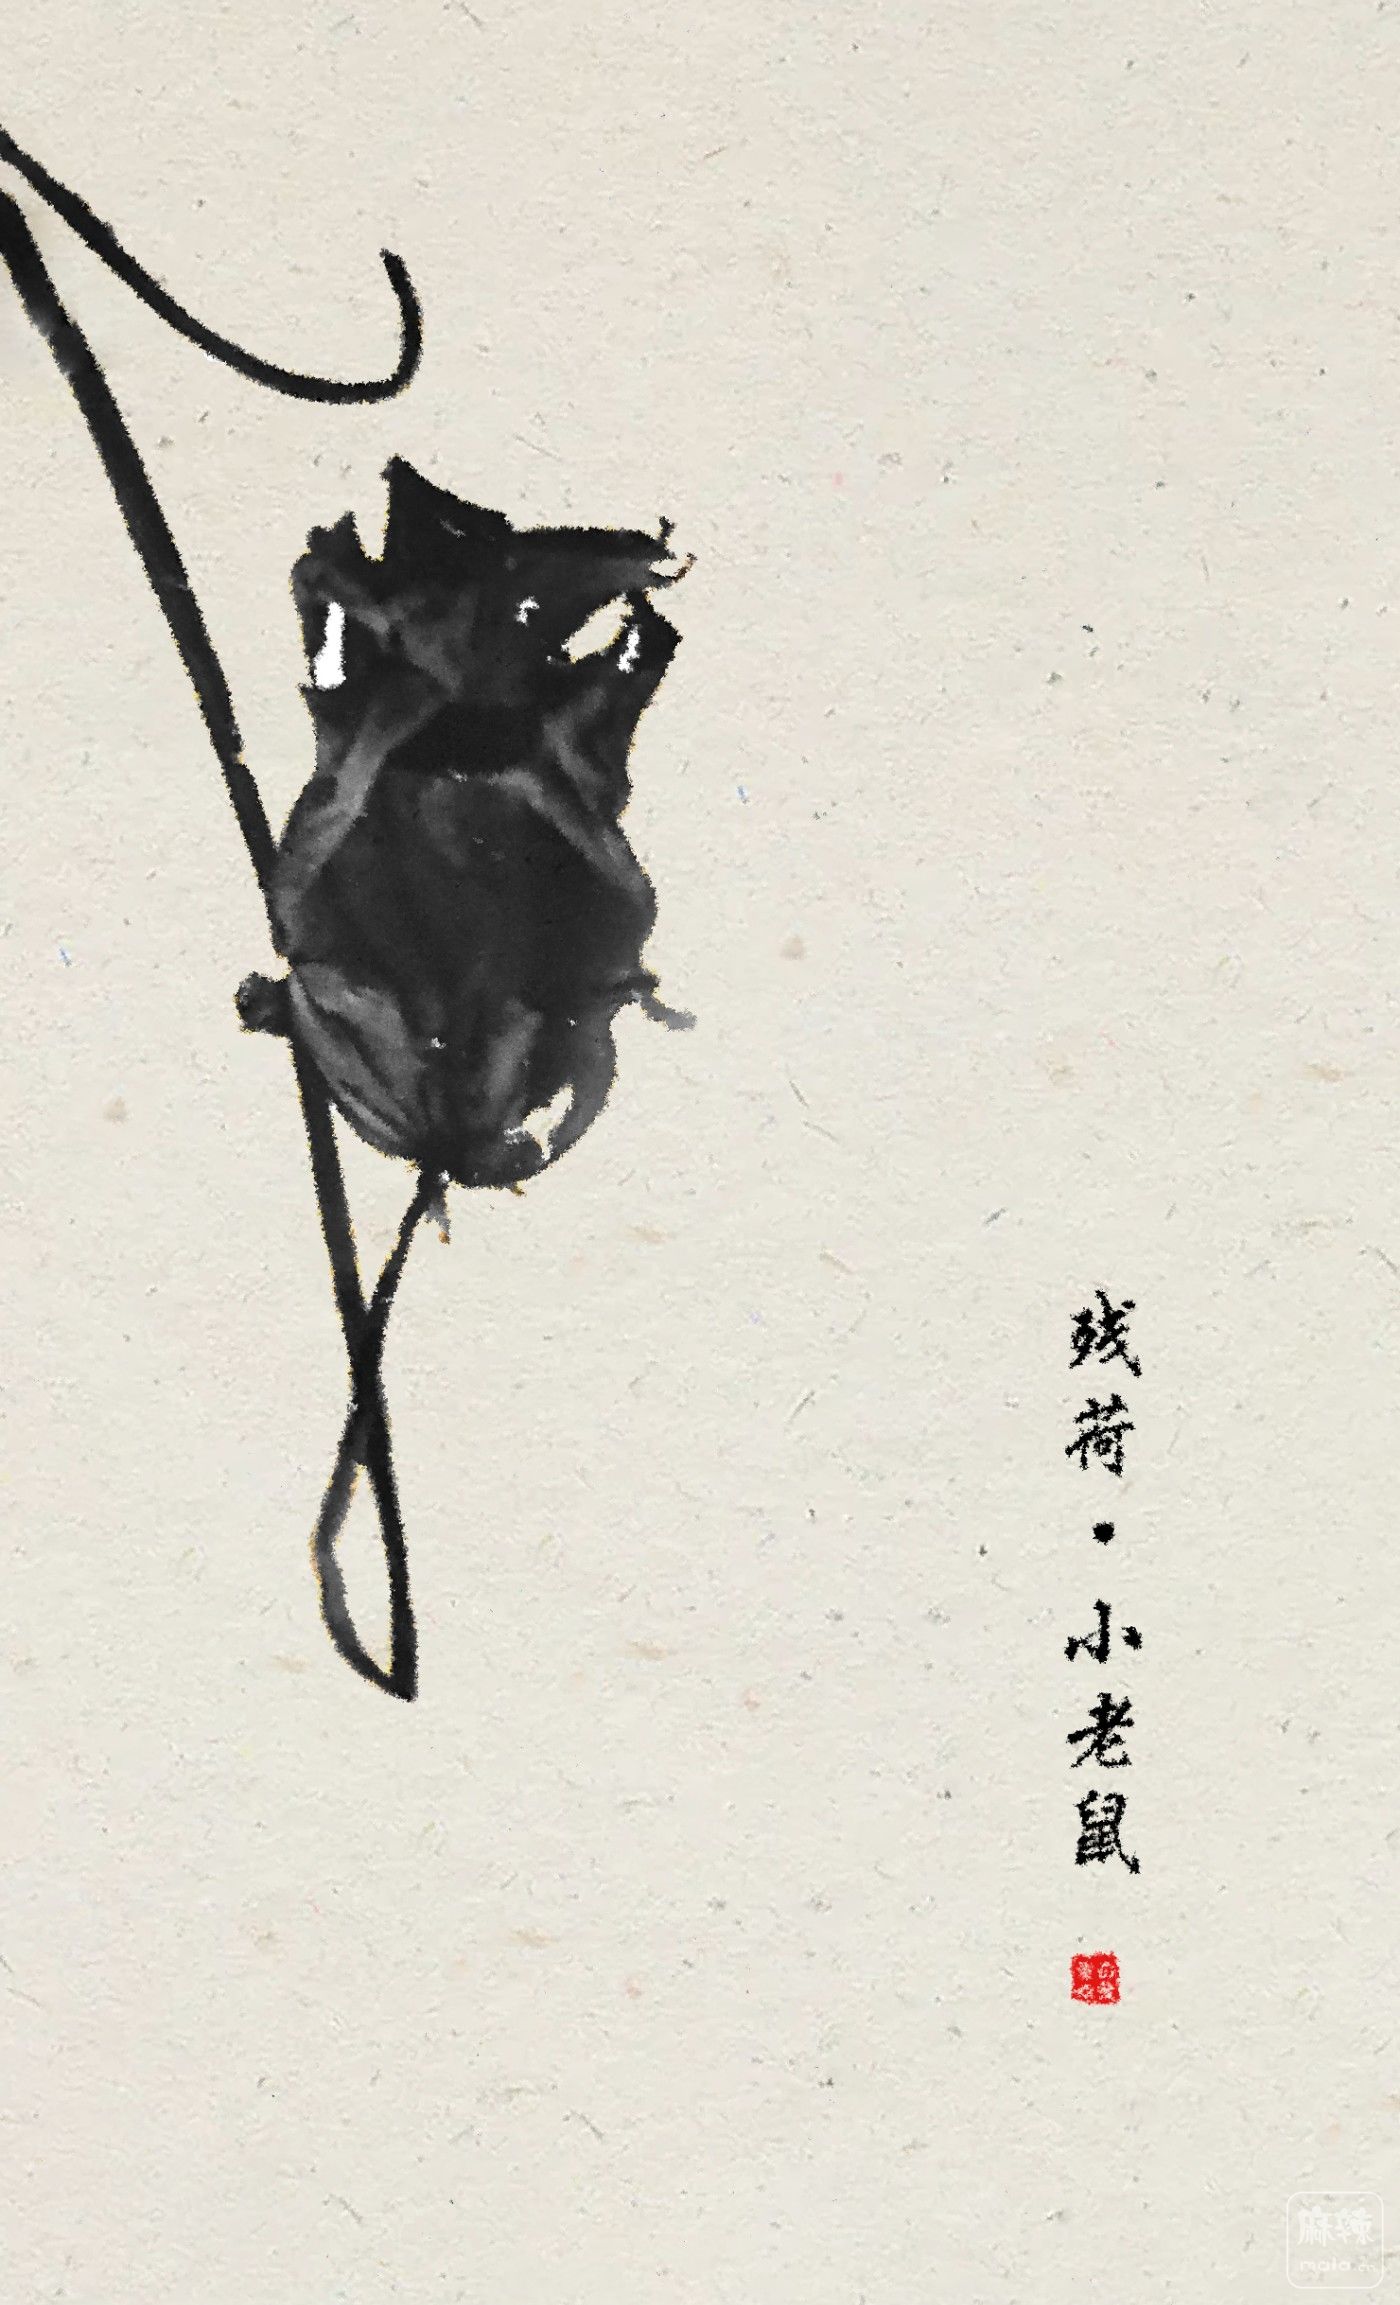 残荷·小老鼠
麻辣
mala.cn